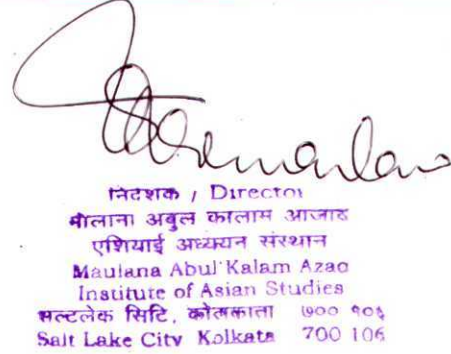 निदेशक / Director
मौलाना अबुल कालाम आजाद
एशियाई अध्ययन संस्थान
Maulana Abul Kalam Azad
Institute of Asian Studies
सल्टलेक सिटि, कोलकाता ७०० १०६
Salt Lake City Kolkata 700 106